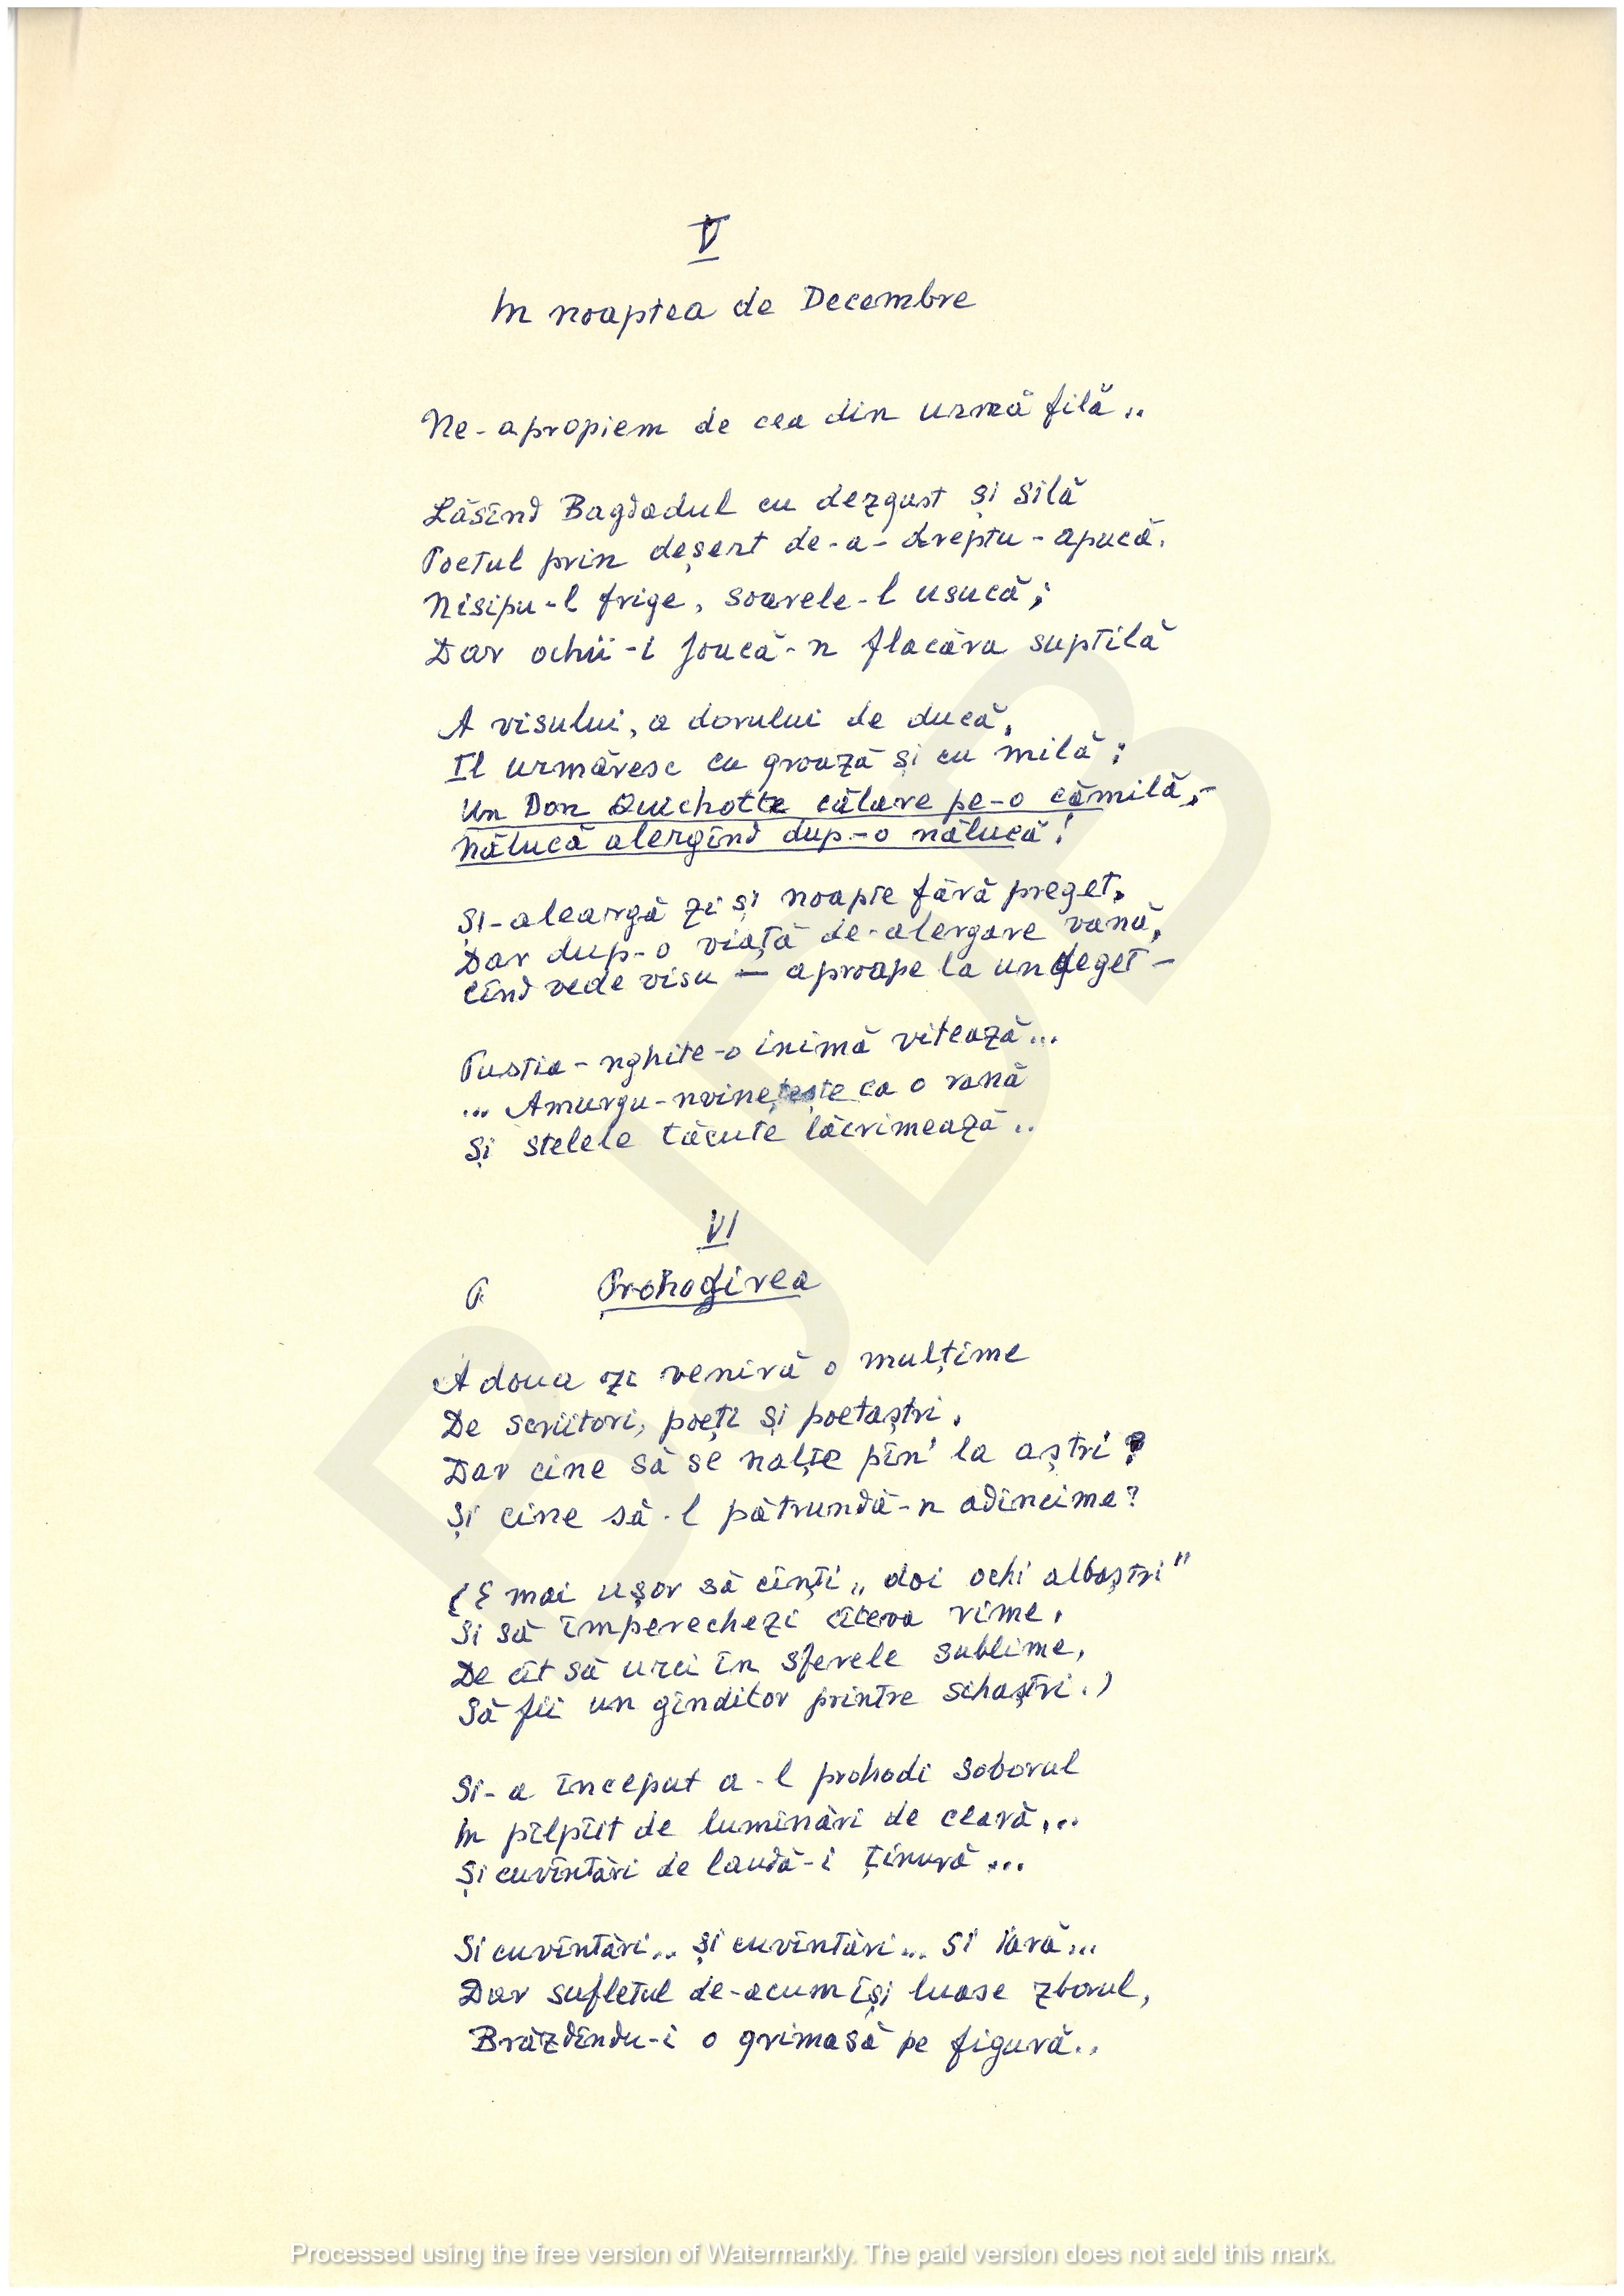 V
In noaptea de Decembre
Ne-apropiem de cea din urmă filă..
Lăsînd Bagdadul cu dezgust și silă
Poetul prin deșert de-a-dreptu-apucă.
Nisipu-l frige, soarele-l usucă;
Dar ochii-i joacă-n flacăra suptilă
A visului, a dorului de ducă,
Il urmăresc cu groază și cu milă;
Un Don Quichotte călare pe-o cămilă,-
Nălucă alergînd dup-o nălucă!
Și-aleargă zi și noapte fără preget,
Dar dup-o viață de-alergare vană,
Cînd vede visu — aproape la un deget —
Pustia-nghite-o inimă vitează...
... Amurgu-nvinețește ca o rană
Și stelele tăcute lăcrimează..
VI
P Prohodirea
A doua zi veniră o mulțime
De scriitori, poeți și poetaștri.
Dar cine să se nalțe pîn' la aștri?
Și cine să-l pătrundă-n adîncime?
(E mai ușor să cînți „doi ochi albaștri"
Si să împerechezi cîteva rime,
De cît să urci în sferele sublime,
Să fii un gînditor printre sihaștri.)
Si-a început a-l prohodi soborul
In pîlpîit de luminări de ceară...
Și cuvîntări de laudă-i ținură...
Si cuvîntări... și cuvîntări... si iară...
Dar sufletul de-acum își luase zborul,
Brăzdîndu-i o grimasă pe figură..
BJDB
Processed using the free version of Watermarkly. The paid version does not add this mark.